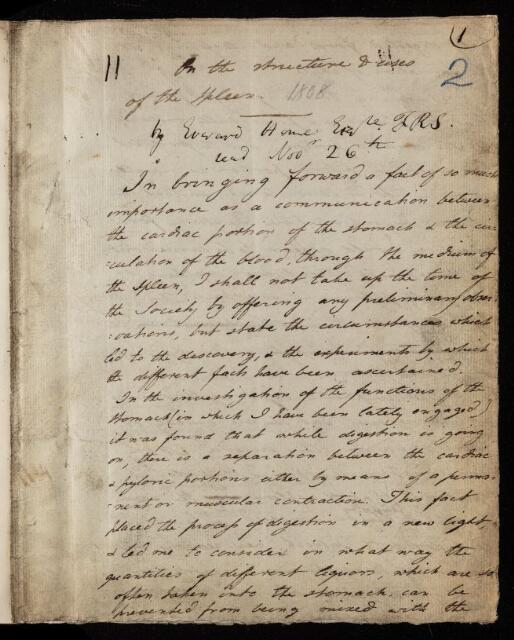 1
2
On the structure & uses
of the Spleen. 1808
by Everard Home Esqre. F.R.S.
read Novr 26th
In bringing forward a fact of so much
importance as a communication between
the cardiac portion of the stomach & the cir
:culation of the blood, through the medium of
the Spleen, I shall not take up the time of
the Society, by offering any preliminary obser
:vations, but state the circumstances which
led to the discovery, & the experiments by which
the different facts have been ascertained.
In the investigation of the functions of the
stomach (in which I have been lately engaged)
it was found that while digestion is going
on, there is a separation between the cardiac
& pyloric portions either by means of a perma
:nent or muscular contraction. This fact
placed the process of digestion in a new light,
& led me to consider in what way the
quantities of different liquors, which are so
often taken into the stomach, can be
prevented from being mixed with the